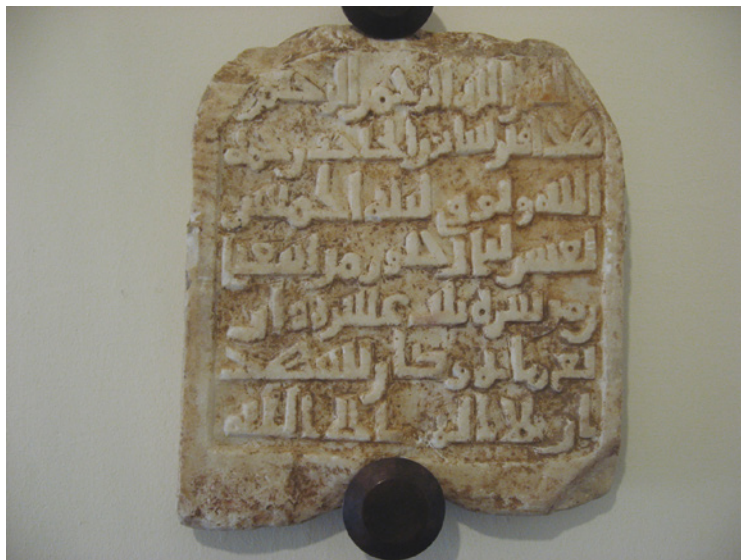 بسم الله الرحمن الرحيم
هذا قبر الحاجب رحمه
الله وتوفي ليلة الخميس
لعشر ليال خلون من شعبا
ن من سنة ثلث عشرة وار
بع مائة وكان يشهد
ان لا اله الا الله